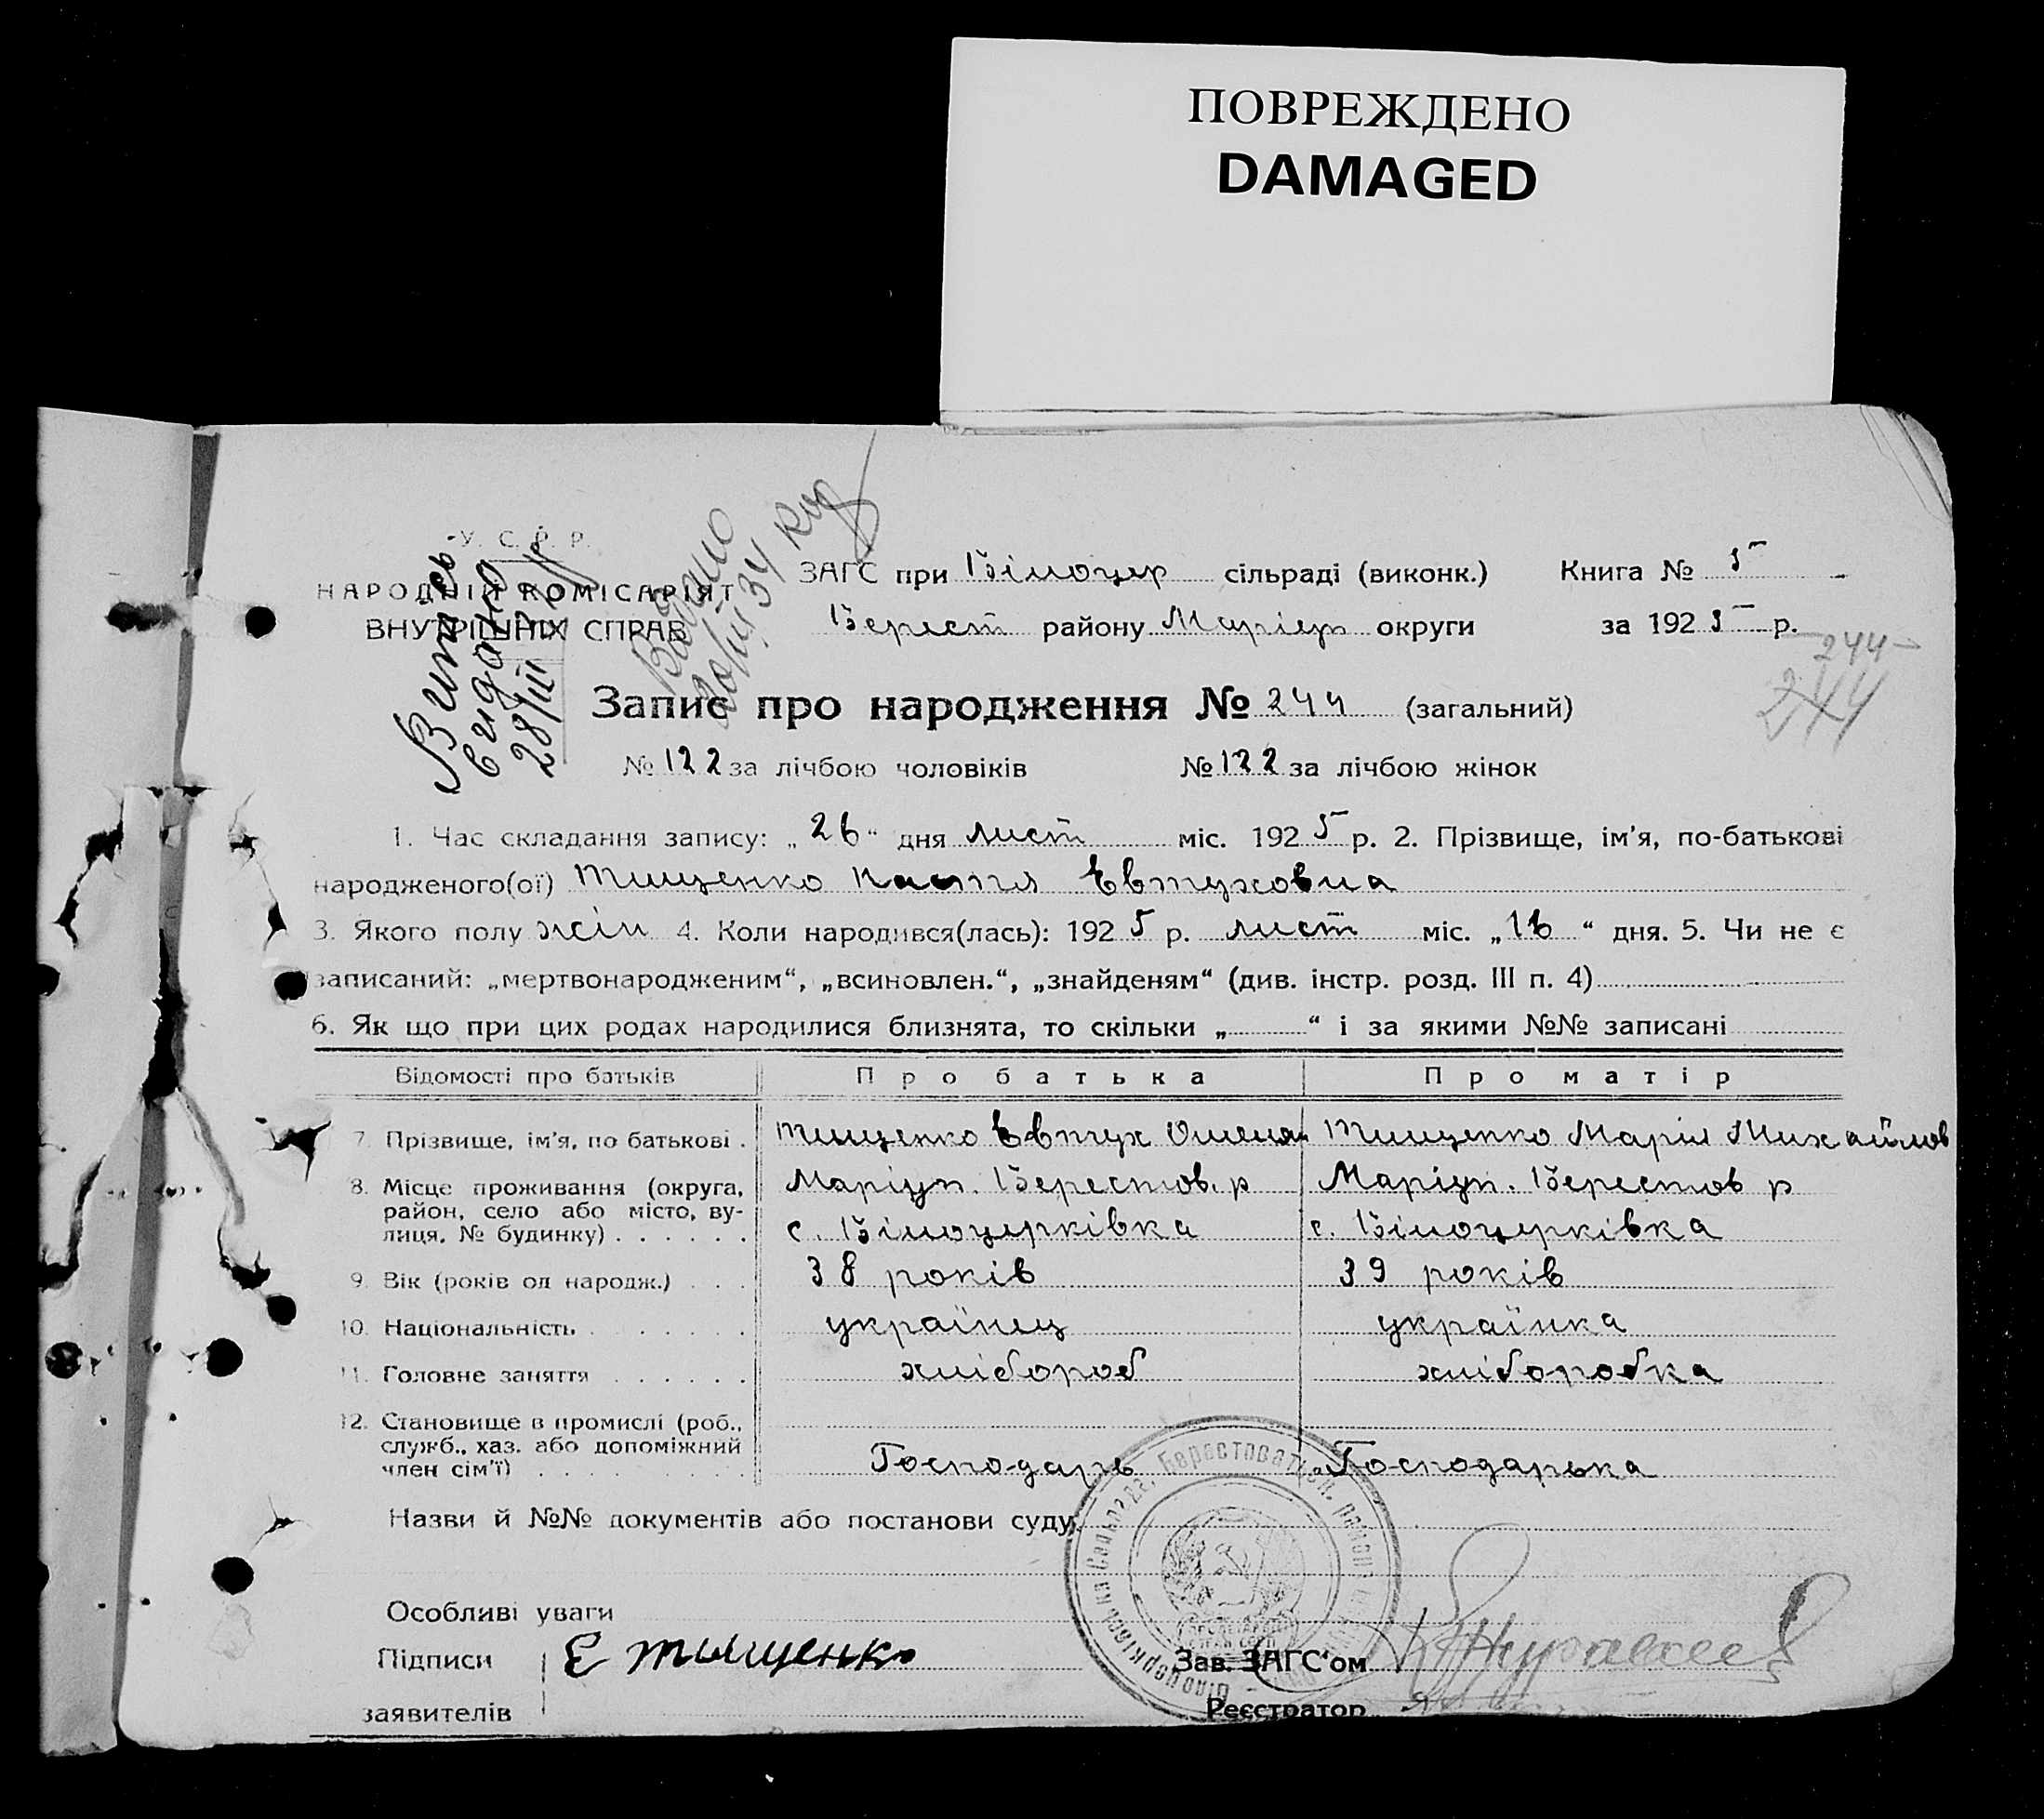 ПОВРЕЖДЕНО
DAMAGED
У. С. Р. Р.
НАРОДНІЙ КОМІСАРІЯТ
ВНУТРІШНІХ СПРАВ
Витяг
видано
28/III
Видано
ЗАГС при Білоцер сільраді (виконк.) Книга № 5
Берест района Маріюп округи за 1925 р.
244
244
Запис про народження № 244 (загальний)
№ 122 за лічбою чоловіків № 122 за лічбою жінок
1. Час складання запису: „26“ дня лист міс. 1925 р. 2. Прізвище, ім’я, по-батькові
народженого(ої) Тищенко Настя Евтуховна
3. Якого полу жін 4. Коли народився(лась): 1925 р. лист міс. „16“ дня. 5. Чи не є
записаний: „мертвонародженим“, „всиновлен.“, „знайденям“ (див. інстр. розд. III п. 4)
6. Як що при цих родах народилися близнята, то скільки „ “ і за якими №№ записані
Відомості про батьків Про батька Про матір
7. Прізвище, ім’я, по батькові Тищенко Евтух Омелян Тищенко Марія Михайлов
8. Місце проживання (округа, Маріуп. Берестов. р Маріуп. Берестов р
район, село або місто, ву-
лиця, № будинку) с. Білоцерківка с. Білоцерківка
9. Вік (років од народж.) 38 років 39 років
10. Національність українец українка
11. Головне заняття хлібороб хліборобка
12. Становище в промислі (роб.,
служб., хаз. або допоміжний
член сім’ї) Господарь Господарька
Назви й №№ документів або постанови суду
Особливі уваги
Підписи Е Тищенко Зав. ЗАГС‘ом
заявителів Реєстратор